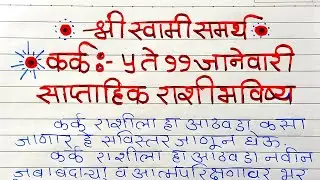 श्री स्वामी समर्थ
कर्क :- ५ ते ११ जानेवारी
साप्ताहिक राशीभविष्य
कर्क राशीला हा आठवडा कसा
जाणार हे सविस्तर जाणून घेऊ.
कर्क राशीला हा आठवडा नवीन
जबाबदाऱ्या व आत्मपरिक्षणावर भर